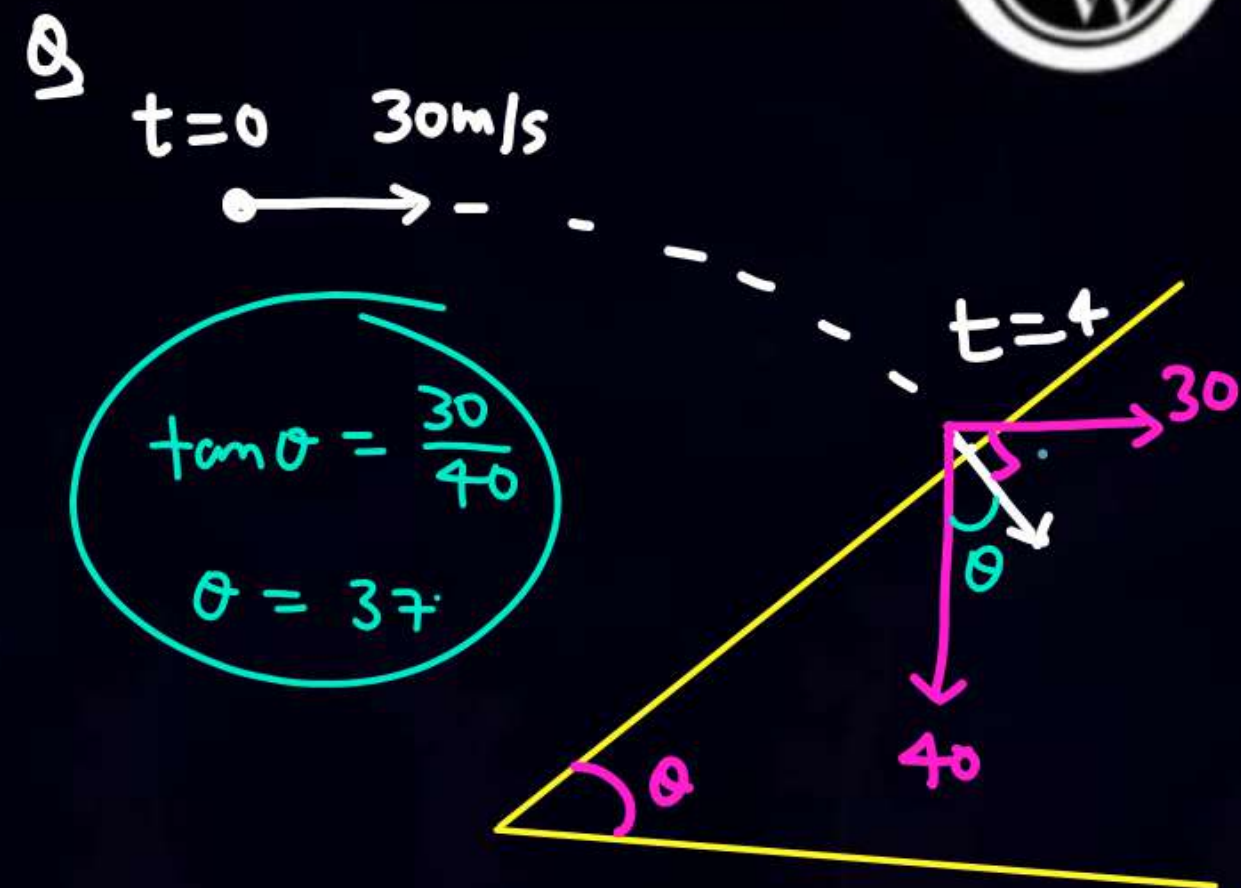 Q
t=0 30m/s
t=4
30
tanθ = 30/40
θ = 37
θ
40
θ